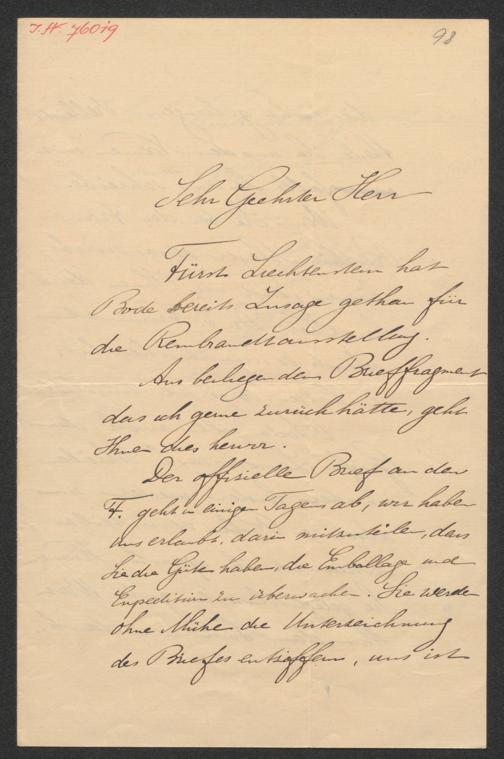 I.N. 76019
98
Sehr Geehrter Herr
Fürst Liechtenstein hat
Bode bereits Zusage gethan für
die Rembrandtausstellung.
Aus beiliegendem Brieffragment
das ich gerne zurück hätte, geht
Ihnen dies hervor.
Der offisielle Brief an den
F. geht in einigen Tagen ab, wir haben
uns erlaubt, darin mitzuteilen, dass
Sie die Güte haben, die Emballage und
Expedition zu überwachen. Sie werden
ohne Mühe die Unterzeichnung
des Briefes entziffern, uns ist